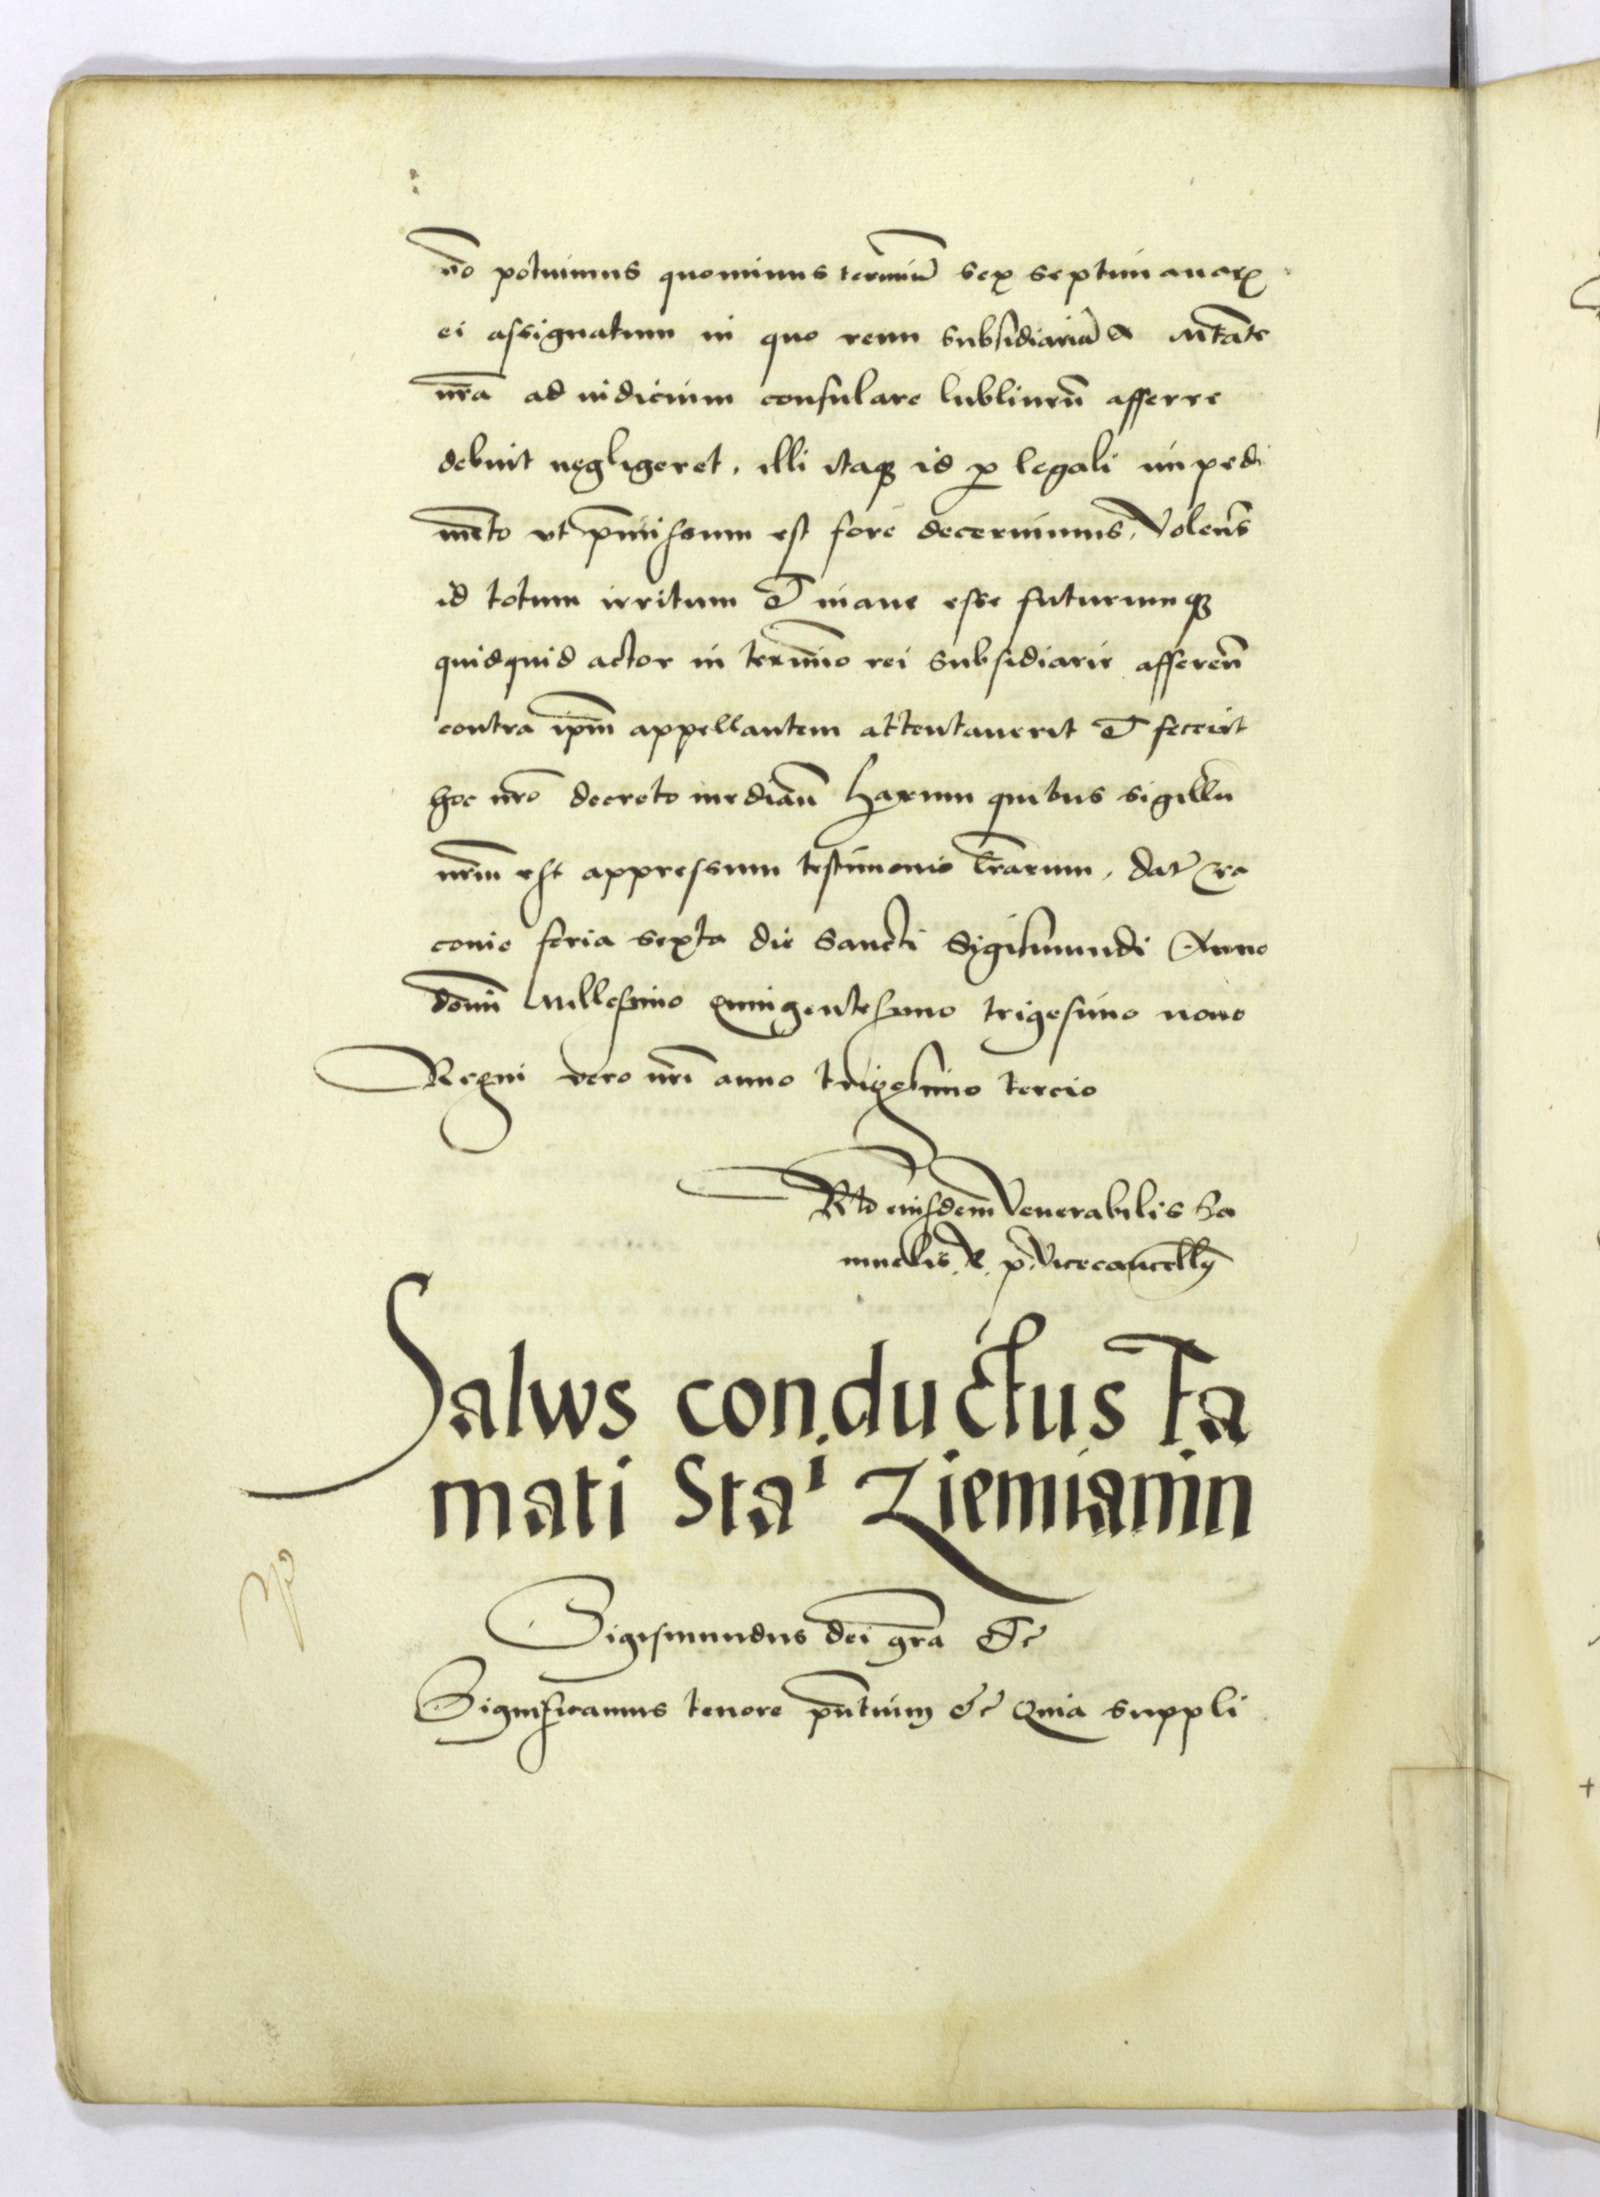 no potuimus quominus terminū sex septimanarꝝ
ei assignatum in quo rem subsidiariā a Mtāte
nrā ad iudicium consulare lublineñ afferre
debuit negligeret, illi itaqꝫ id ꝓ legali impedi
mēto vt p̄missum est fore decernimus, Volen̄s
id totum irritum & inane esse futurumqꝫ
quidquid actor in termīno rei subsidiarie afferen̄
contra ip̄m appellantem attentauerit & fecerit
hoc nr̄o decreto mediañ Harum quibus sigillū
nr̄m est appressum testimonio lr̄arum, Dat̄ Cra
couie feria sexta die Sancti Sigismundi Anno
domī Millesimo quingentesimo trigesimo nono
Regni vero nr̄i anno trigesimo tercio
Rtō eiusdem Venerabilis Sa
muelis. &. p. Vicecancell
Salws conductus fa
mati Stai Ziemianin
Sigismundus dei gr̄a &c
Significamus tenore pn̄tium &c Quia suppli